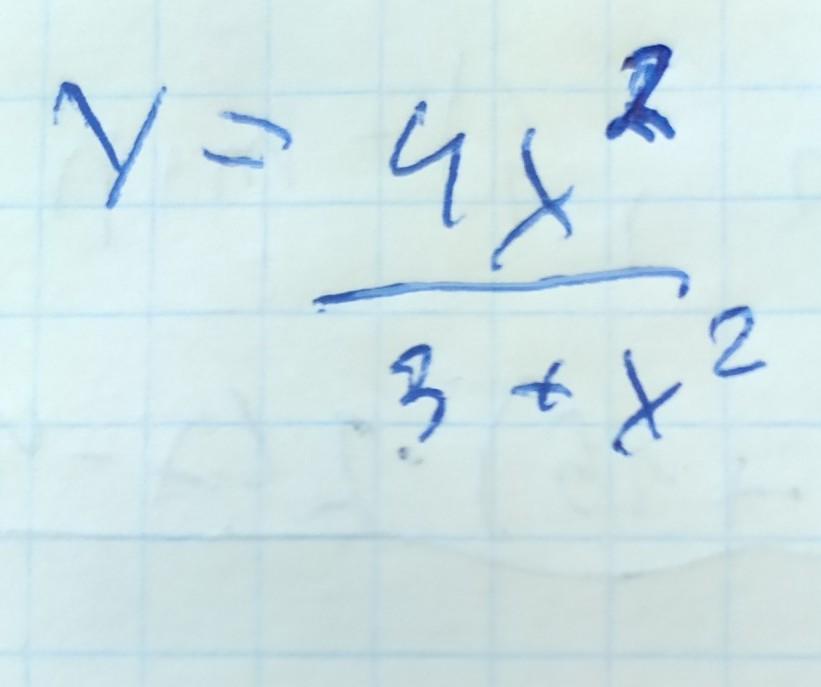 y = 4x²
3 + x²